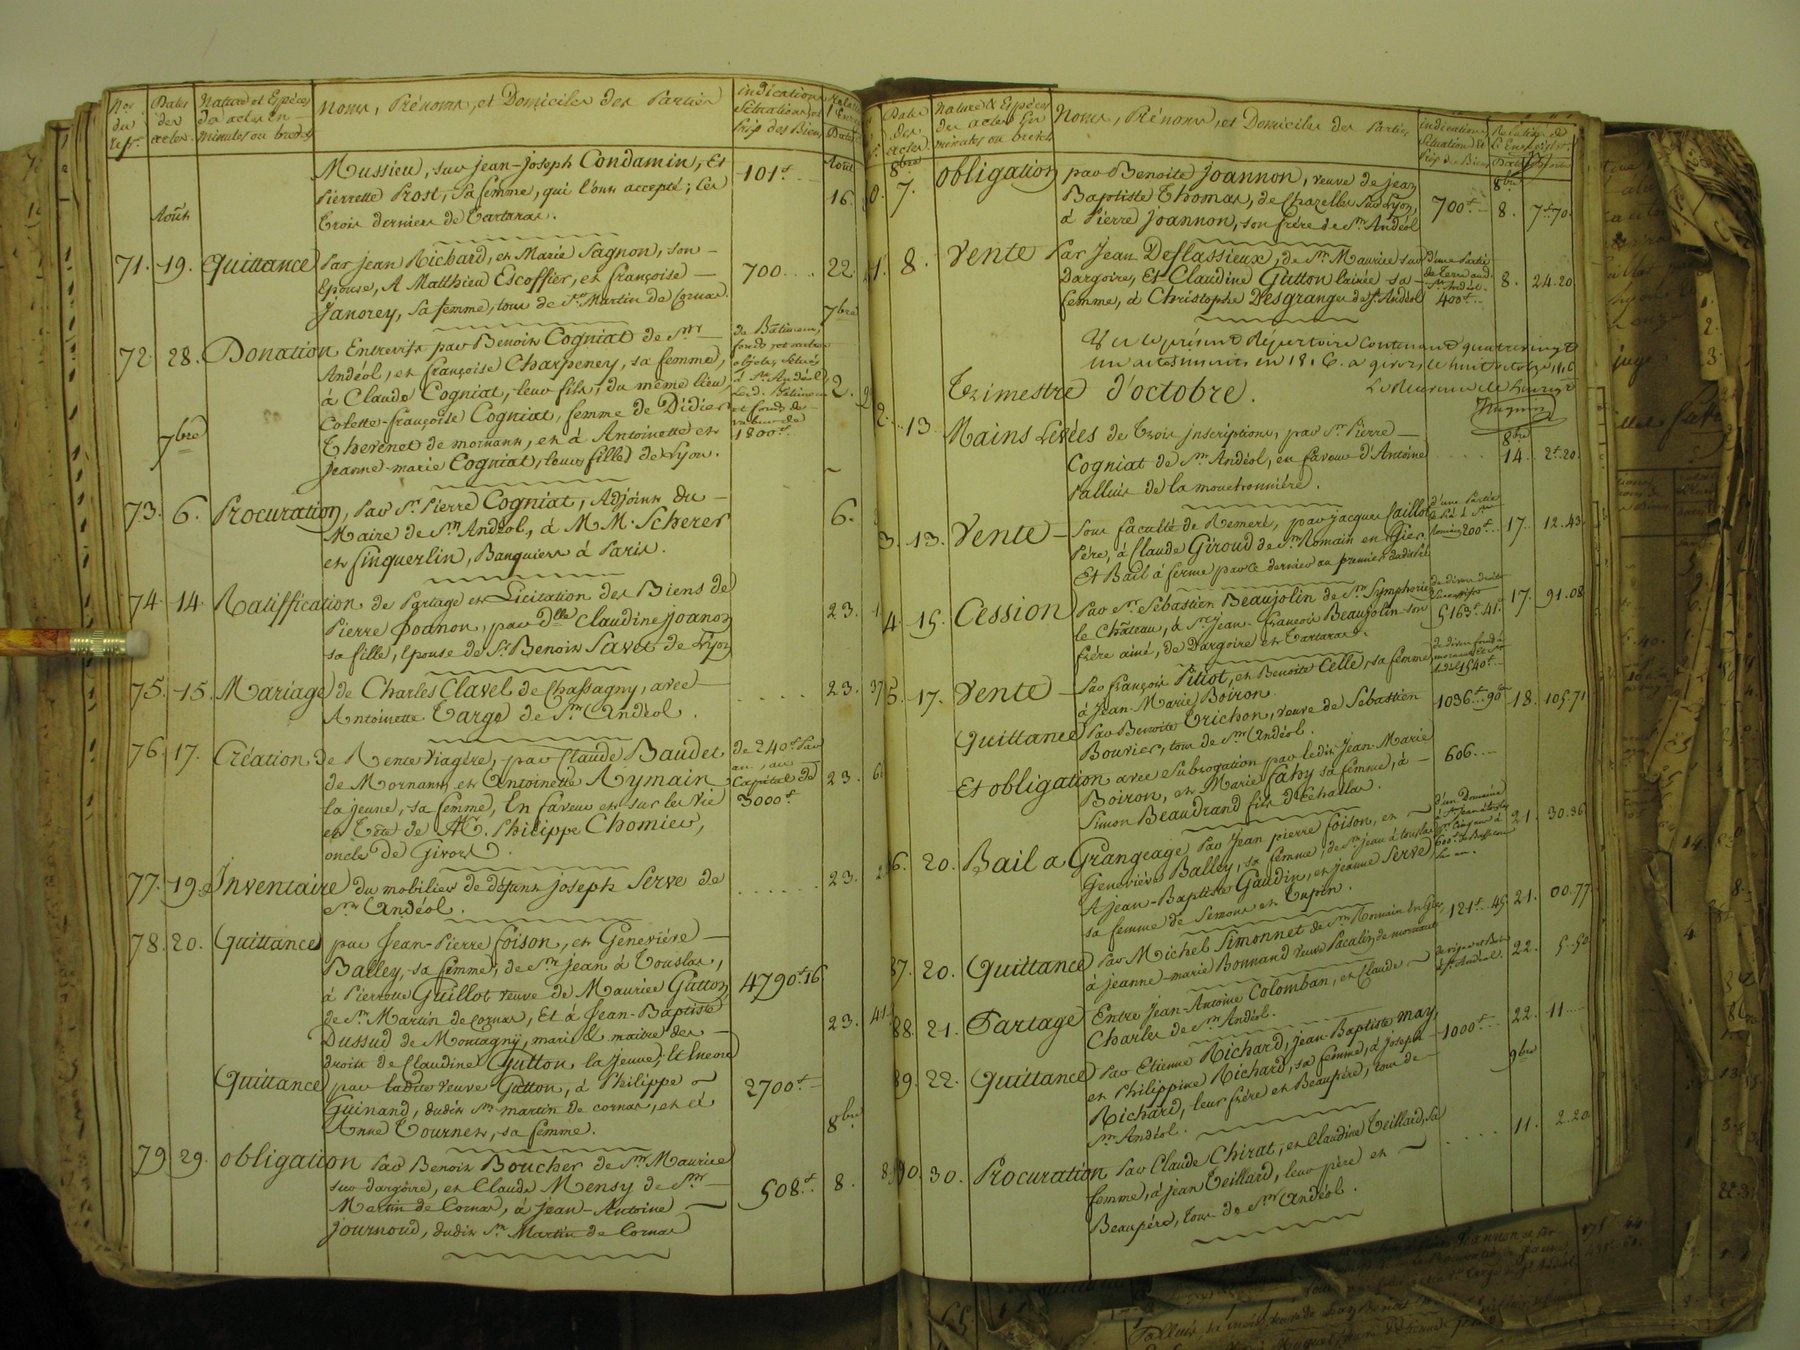 Nos du Rep.re
Dates des actes.
Nature et Espèces des actes en minutes ou brevets
Noms, Prénoms, et Domiciles des Parties
indications Situations et Prix des Biens
Août
Mussieu, sur Jean-Joseph Condamin, Et 101tt
Pierrette Prost, sa femme, qui l'ont accepté; les 16.
Août trois derniers de Tartaras.
71. 19. Quittance Par Jean Richard, et Marie Sagnon, son 700.... 22.
Epouse, A Matthieu Escoffier, et françoise
Janorey, sa femme, tous de St Martin de Cornas. 7bre
72. 28. Donation Entrevifs par Benoit Cogniat de St
Andéol, et françoise Charpeney, sa femme,
à Claude Cogniat, leur fils, du même lieu, 2.
Colette-françoise Cogniat, femme de Didier
7bre Thevenet de mornant, et à Antoinette et
Jeanne-marie Cogniat, leurs filles de Lyon.
de Bâtimens, fonds et autres objets, Situés à St Andéol
et fonds de valeur de 1800tt
73. 6. Procuration, Par Sr Pierre Cogniat, Adjoint du
Maire de St Andéol, à M.M. Scherer 6.
et finguerlin, Banquiers à Paris.
74. 14. Ratiffication de Partage et Licitation des Biens de
Pierre Joanon, par dlle Claudine Joanon 23.
sa fille, Epouse de Sr Benoit Savet de Lyon
75. 15. Mariage de Charles Clavel de Chassagny, avec .... 23.
Antoinette Targe de St Andéol.
76. 17. Création de Rente Viagère, par Claude Baudet de 240tt Par an, au
de Mornant, et Antoinette Aymain Capital de 23.
la jeune, sa femme, En faveur et sur les Vie 3000tt
et Tête de Philippe Chomier,
oncle de Givors.
77. 19. Inventaire du mobilier de défunt Joseph Serve de ...... 23.
St Andéol.
78. 20. Quittance par Jean-Pierre foison, et Geneviève
Balley, sa femme, de St Jean à Touslas,
à Pierrette Guillot veuve de Maurice Gutton 4790tt.16
de St Martin de Cornas, Et à Jean-Baptiste 23. 41.
Dussud de Montagny, mari & maître des
droits de Claudine Gutton, la Jeune; Et Encore
Quittance par ladite veuve Gutton, à Philippe 2700tt
Guinand, dudit St martin de cornas, et à
Anne Tournet, sa femme. 8bre
79. 29. obligation Par Benoit Boucher de St Maurice
sur dargoire, et Claude Mensy de St 508tt. 8.
Martin de Cornas, à Jean-Antoine
Journoud, dudit St Martin de Cornas
Date des actes.
Nature & Espèces des actes En minutes ou brevets
Noms, Prénoms, et Domiciles des Parties
indications Situation et Prix des Biens
Relation de L'Enregistrt
8bre 8bre
7. obligation par Benoite Joannon, veuve de Jean
Baptiste Thomas, de Chazelles sur Lyon, 700tt 8. 7tt.70
à Pierre Joannon, son frère de St Andéol
8. Vente Par Jean Deflassieux, de St Maurice sur d'une Partie
Dargoire, Et Claudine Gutton lainée sa de Terre aud. St Andéol. 8. 24.20
femme, à Christophe Desgranges de St Andéol 400tt
Vu le présent Répertoire contenant quatrevingt
un actes inscrits en 1816. a givors, le huit octobre 1816
Le Receveur de l'Enregt
Trimestre d'octobre.
8bre
2. 13. Mains Levées de Trois inscriptions, par Sr Pierre
Cogniat de St Andéol, en faveur d'Antoine .... 14. 2tt.20
Palluis de la mouchonnière.
3. 13. Vente Sous faculté de Remeré, par jacques Jaillot
Père, à Claude Giroud de St Romain en Gier. 200tt 17. 12.43
Et Bail à ferme par ce dernier au premier dudit Pré
4. 15. Cession Par Sr Sébastien Beaujolin de St Symphorien
le Château, à Sr Jean-françois Beaujolin son 5163tt.41 17. 91.08
frère aîné, de Dargoire et Tartaras.
5. 17. Vente Par françois Pitiot, et Benoite Celle, sa femme 1540tt
à Jean-Marie Boiron.
Quittance Par Benoite Trichon, veuve de Sébastien 1036tt.90 18. 105.71
Bouvier, tous de St Andéol.
Et obligation avec Subrogation par ledit Jean-Marie 606...
Boiron, et Marie Cahy sa femme, à
Simon Beaudrand fils d'Echallas.
6. 20. Bail a Grangeage Par Jean pierre foison, et d'un Domaine
Geneviève Balley, sa femme, de St jean à touslas 21. 30.36
A Jean-Baptiste Gaudin, et jeanne Serve
sa femme de Semons et Tupin.
87. 20. Quittance Par Michel Simonnet de St Romain en Gier, 121tt.45 21. 00.77
à jeanne-marie Bonnand veuve Pacalin, de mornant
88. 21. Partage Entre Jean-Antoine Colomban, et Claude 22. 5.50
Charles de St Andéol.
89. 22. Quittance Par Etienne Richard, Jean-Baptiste May, 1000tt 22. 11
et Philippine Richard, sa femme, à Joseph
Richard, leur frère et Beaupère, tous de 9bre
St Andéol.
90. 30. Procuration Par Claude Chirat, et Claudine Teillard, sa .... 11. 2.20
femme, à Jean Teillard, leur père et
Beaupère, tous de St Andéol.